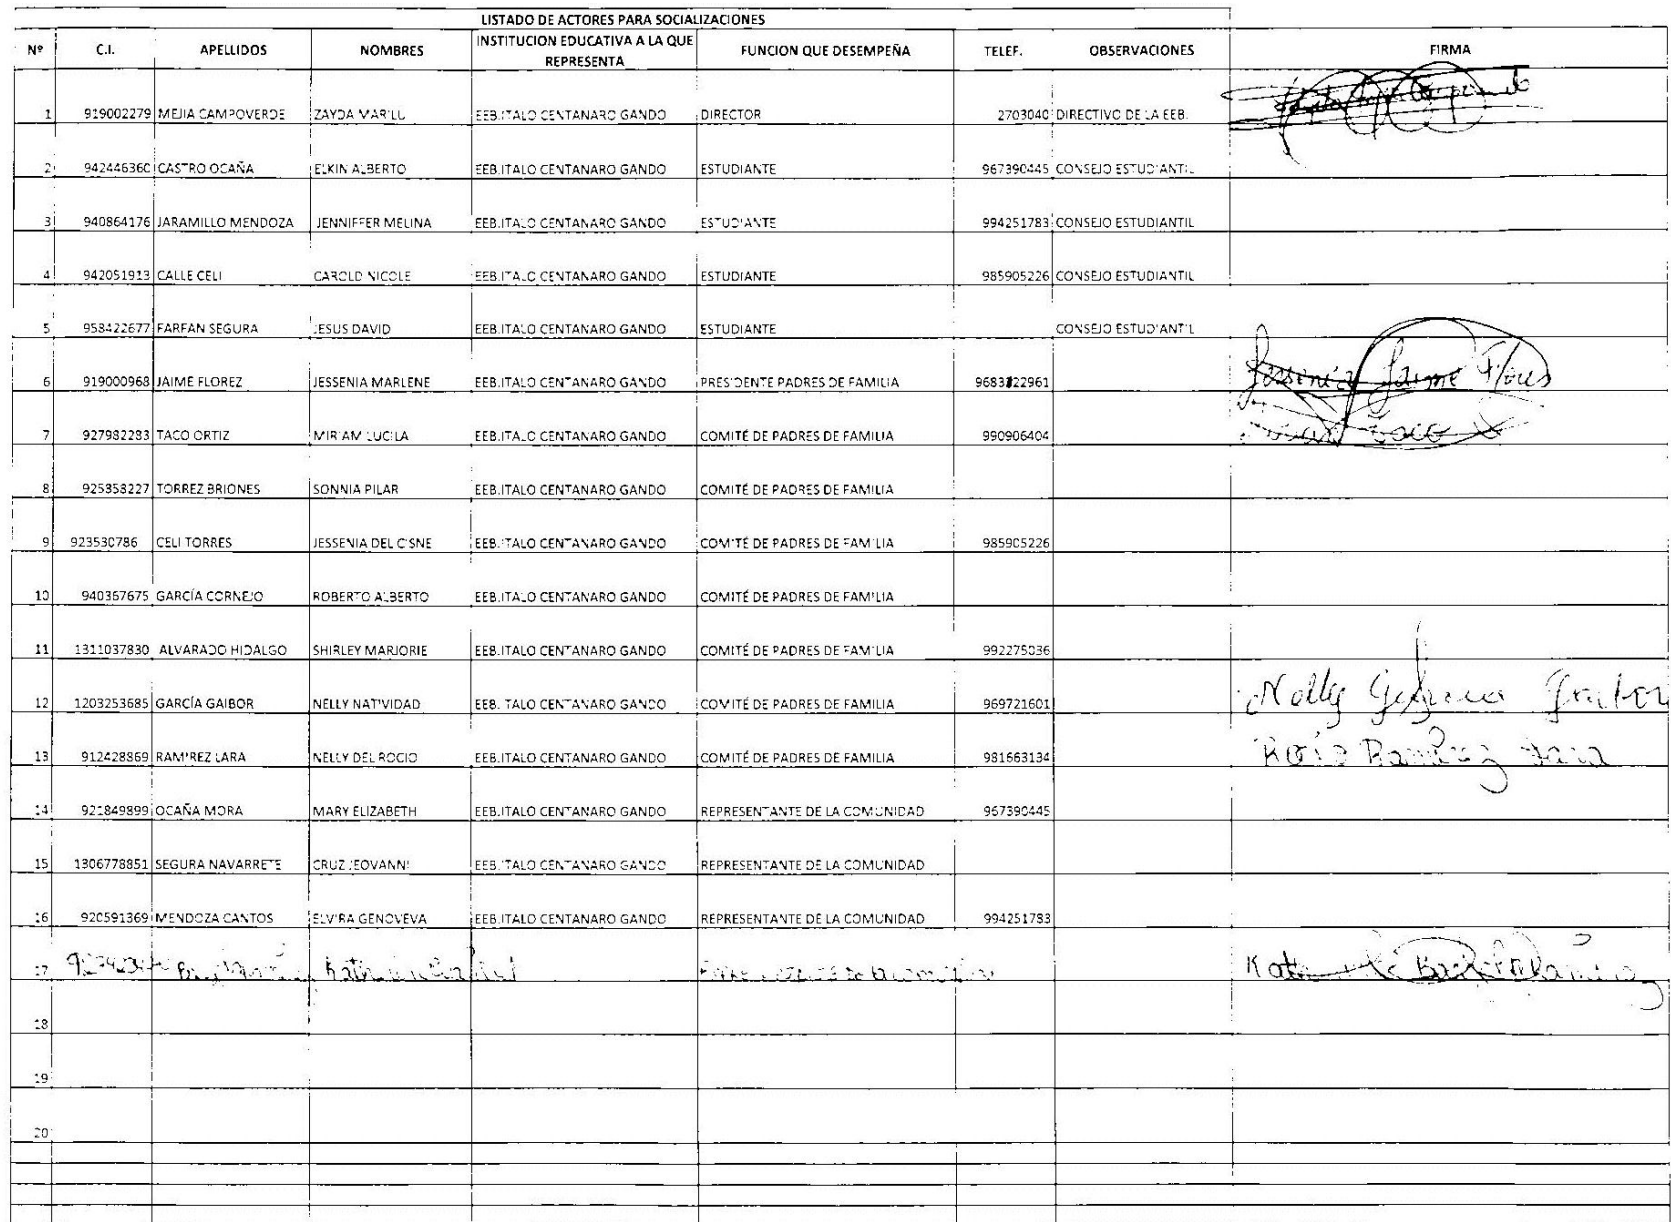 LISTADO DE ACTORES PARA SOCIALIZACIONES
Nº C.I. APELLIDOS NOMBRES INSTITUCION EDUCATIVA A LA QUE REPRESENTA FUNCION QUE DESEMPEÑA TELEF. OBSERVACIONES FIRMA
1 919002279 MEJIA CAMPOVERDE ZAYDA MARILU EEB.ITALO CENTANARO GANDO DIRECTOR 2703040 DIRECTIVO DE LA EEB.
2 942446360 CASTRO OCAÑA ELKIN ALBERTO EEB.ITALO CENTANARO GANDO ESTUDIANTE 967390445 CONSEJO ESTUDIANTIL
3 940864176 JARAMILLO MENDOZA JENNIFFER MELINA EEB.ITALO CENTANARO GANDO ESTUDIANTE 994251783 CONSEJO ESTUDIANTIL
4 942051913 CALLE CELI CAROLD NICOLE EEB.ITALO CENTANARO GANDO ESTUDIANTE 985905226 CONSEJO ESTUDIANTIL
5 958422677 FARFAN SEGURA JESUS DAVID EEB.ITALO CENTANARO GANDO ESTUDIANTE CONSEJO ESTUDIANTIL
6 919000968 JAIME FLOREZ JESSENIA MARLENE EEB.ITALO CENTANARO GANDO PRESIDENTE PADRES DE FAMILIA Jessenia Jaime Flores
7 927982283 TACO ORTIZ MIRIAM LUCILA EEB.ITALO CENTANARO GANDO COMITÉ DE PADRES DE FAMILIA 990906404 Taco
8 925358227 TORREZ BRIONES SONNIA PILAR EEB.ITALO CENTANARO GANDO COMITÉ DE PADRES DE FAMILIA
9 923530786 CELI TORRES JESSENIA DEL CISNE EEB.ITALO CENTANARO GANDO COMITÉ DE PADRES DE FAMILIA 985905226
10 940367675 GARCÍA CORNEJO ROBERTO ALBERTO EEB.ITALO CENTANARO GANDO COMITÉ DE PADRES DE FAMILIA
11 1311037830 ALVARADO HIDALGO SHIRLEY MARJORIE EEB.ITALO CENTANARO GANDO COMITÉ DE PADRES DE FAMILIA 992275036
12 1203253685 GARCÍA GAIBOR NELLY NATIVIDAD EEB.ITALO CENTANARO GANDO COMITÉ DE PADRES DE FAMILIA 969721601 Nelly
13 912428869 RAMIREZ LARA NELLY DEL ROCIO EEB.ITALO CENTANARO GANDO COMITÉ DE PADRES DE FAMILIA 981663134 Rocio Ramirez Lara
14 921849899 OCAÑA MORA MARY ELIZABETH EEB.ITALO CENTANARO GANDO REPRESENTANTE DE LA COMUNIDAD 967390445
15 1306778851 SEGURA NAVARRETE CRUZ JEOVANNI EEB.ITALO CENTANARO GANDO REPRESENTANTE DE LA COMUNIDAD
16 920591369 MENDOZA CANTOS ELVIRA GENOVEVA EEB.ITALO CENTANARO GANDO REPRESENTANTE DE LA COMUNIDAD 994251783
17
18
19
20